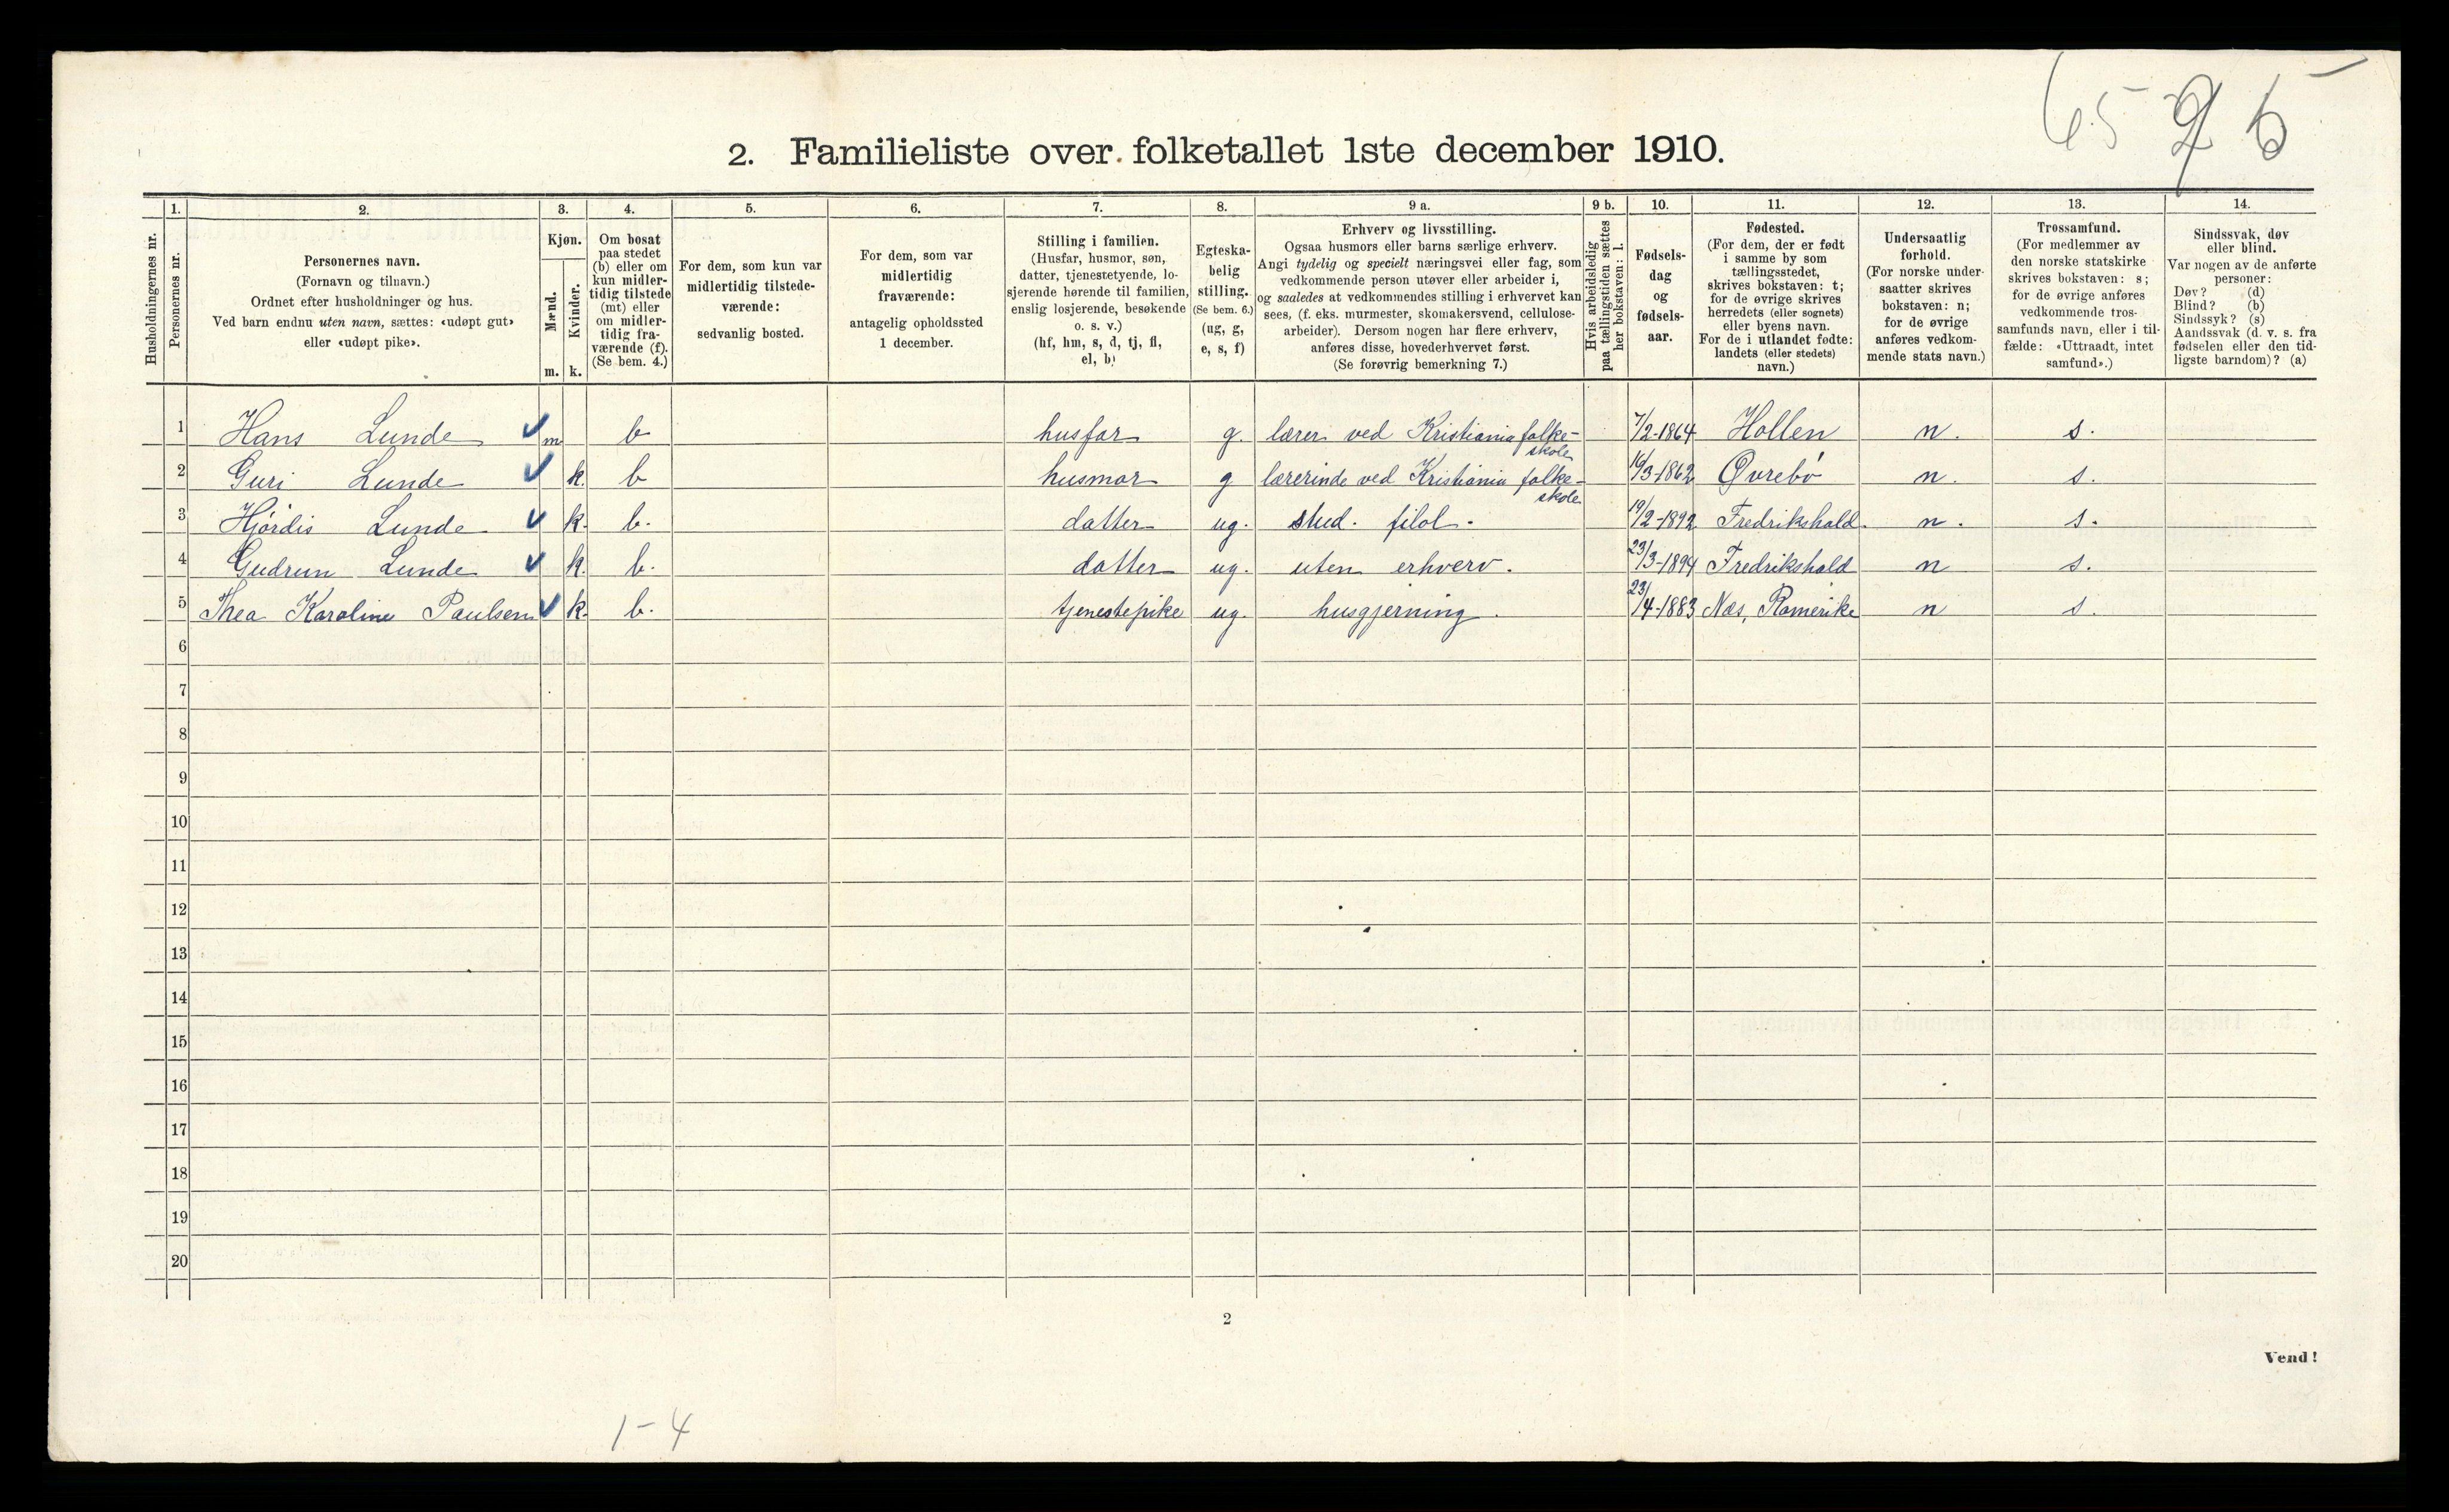 65 2 5
2. Familieliste over folketallet 1ste december 1910.
Husholdningernes nr.
1.
Personernes nr.
2.
Personernes navn.
(Fornavn og tilnavn.)
Ordnet efter husholdninger og hus.
Ved barn endnu uten navn, sættes: «udøpt gut»
eller «udøpt pike».
3.
Kjøn.
Mænd.
m.
Kvinder.
k.
4.
Om bosat
paa stedet
(b) eller om
kun midler-
tidig tilstede
(mt) eller
om midler-
tidig fra-
værende (f).
(Se bem. 4.)
5.
For dem, som kun var
midlertidig tilstede-
værende:
sedvanlig bosted.
6.
For dem, som var
midlertidig
fraværende:
antagelig opholdssted
1 december.
7.
Stilling i familien.
(Husfar, husmor, søn,
datter, tjenestetyende, lo-
sjerende hørende til familien,
enslig losjerende, besøkende
o. s. v.)
(hf, hm, s, d, tj, fl,
el, b)
8.
Egteska-
belig
stilling.
(Se bem. 6.)
(ug, g,
e, s, f)
9 a.
Erhverv og livsstilling.
Ogsaa husmors eller barns særlige erhverv.
Angi tydelig og specielt næringsvei eller fag, som
vedkommende person utøver eller arbeider i,
og saaledes at vedkommendes stilling i erhvervet kan
sees, (f. eks. murmester, skomakersvend, cellulose-
arbeider). Dersom nogen har flere erhverv,
anføres disse, hovederhvervet først.
(Se forøvrig bemerkning 7.)
9 b.
Hvis arbeidsledig
paa tællingstiden sættes
her bokstaven: l.
10.
Fødsels-
dag
og
fødsels-
aar.
11.
Fødested.
(For dem, der er født
i samme by som
tællingsstedet,
skrives bokstaven: t;
for de øvrige skrives
herredets (eller sognets)
eller byens navn.
For de i utlandet fødte:
landets (eller stedets)
navn.)
12.
Undersaatlig
forhold.
(For norske under-
saatter skrives
bokstaven: n;
for de øvrige
anføres vedkom-
mende stats navn.)
13.
Trossamfund.
(For medlemmer av
den norske statskirke
skrives bokstaven: s;
for de øvrige anføres
vedkommende tros-
samfunds navn, eller i til-
fælde: «Uttraadt, intet
samfund».)
14.
Sindssvak, døv
eller blind.
Var nogen av de anførte
personer:
Døv? (d)
Blind? (b)
Sindssyk? (s)
Aandssvak (d. v. s. fra
fødselen eller den tid-
ligste barndom)? (a)
1 Hans Lunde m b husfar g. lærer ved Kristiania folke-skole 7/2-1864 Hollen n. s.
2 Guri Lunde k. b husmor g lærerinde ved Kristiania folke-skole 16/3-1862 Øvrebö n. s.
3 Hjördis Lunde k. b. datter ug. stud. filol. 19/2-1892 Fredrikshald. n. s.
4 Gudrun Lunde k. b. datter ug. uten erhverv. 23/3-1894 Fredrikshald n s.
5 Thea Karoline Paulsen k. b. tjenestepike ug. husgjerning. 23/4-1883 Næs, Romerike n s.
6
7
8
9
10
11
12
13
14
15
16
17
18
19
20
2
Vend!
1-4